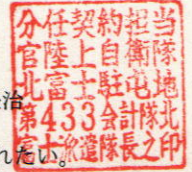 分任契約担当
官陸上自衛隊
北富士駐屯地
第433会計隊北
富士派遣隊長之印
治
れたい。